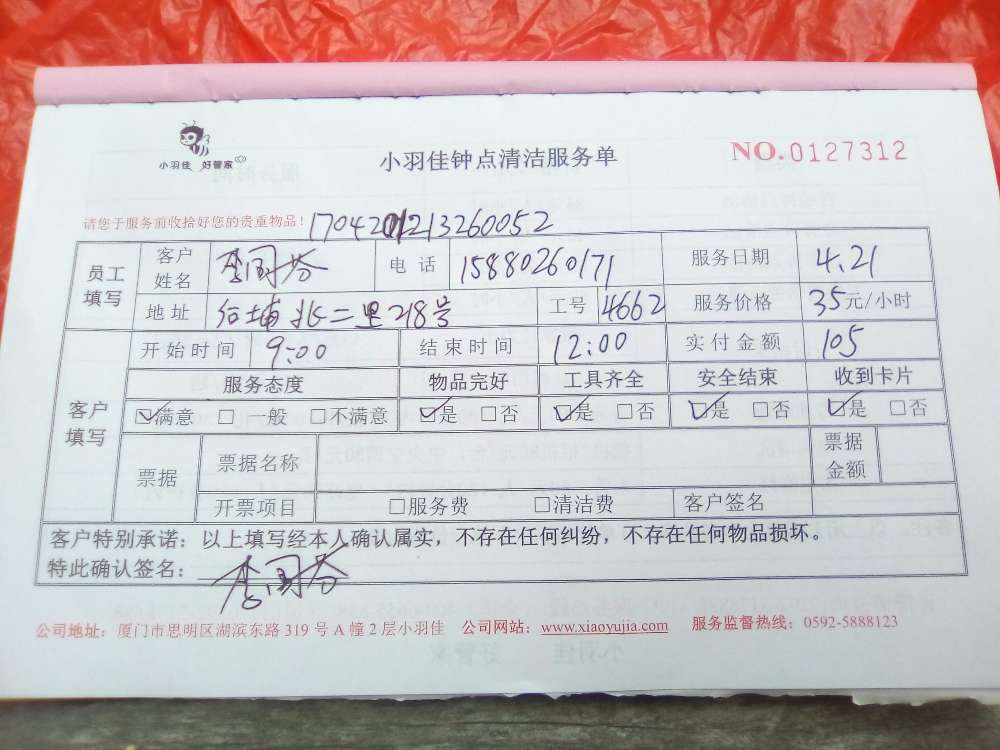 小羽佳 好管家
小羽佳钟点清洁服务单
NO.0127312
请您于服务前收拾好您的贵重物品！17042101213260052
员工填写 客户姓名 李阁芬 电话 15880260171 服务日期 4.21
地址 后埔北二里218号 工号 4662 服务价格 35元/小时
客户填写 开始时间 9:00 结束时间 12:00 实付金额 105
服务态度 物品完好 工具齐全 安全结束 收到卡片
☑满意 □一般 □不满意 ☑是 □否 ☑是 □否 ☑是 □否 ☑是 □否
票据 票据名称 票据金额
开票项目 □服务费 □清洁费 客户签名
客户特别承诺：以上填写经本人确认属实，不存在任何纠纷，不存在任何物品损坏。
特此确认签名：李阁芬
公司地址：厦门市思明区湖滨东路 319 号 A 幢 2 层小羽佳 公司网站：www.xiaoyujia.com 服务监督热线：0592-5888123